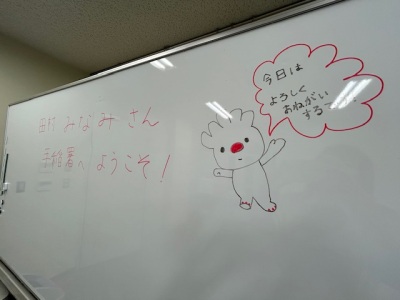 田村 みなみ さん
手稲署へ ようこそ！
今日は
よろしく
おねがい
するー